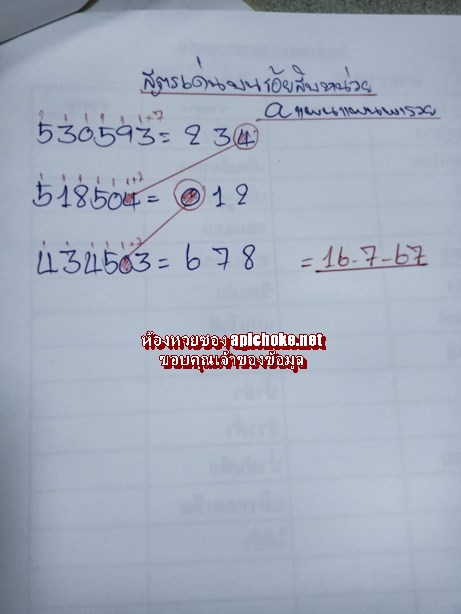 สูตรเด่นบนร้อยสิบหน่วย
a แพนแพนพารวย
530593 = 234
518504 = 012
434503 = 678 = 16-7-67
ห้องหวยซอง apichoke.net
ขอบคุณเจ้าของข้อมูล